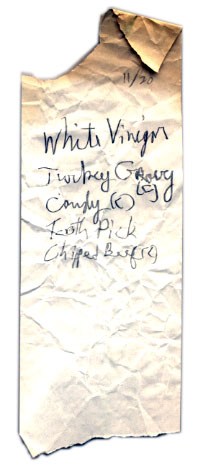 11/20
White Vinegar
Turkey Gravy
Candy (K)
Tooth Pick
Chipped Beef (2)